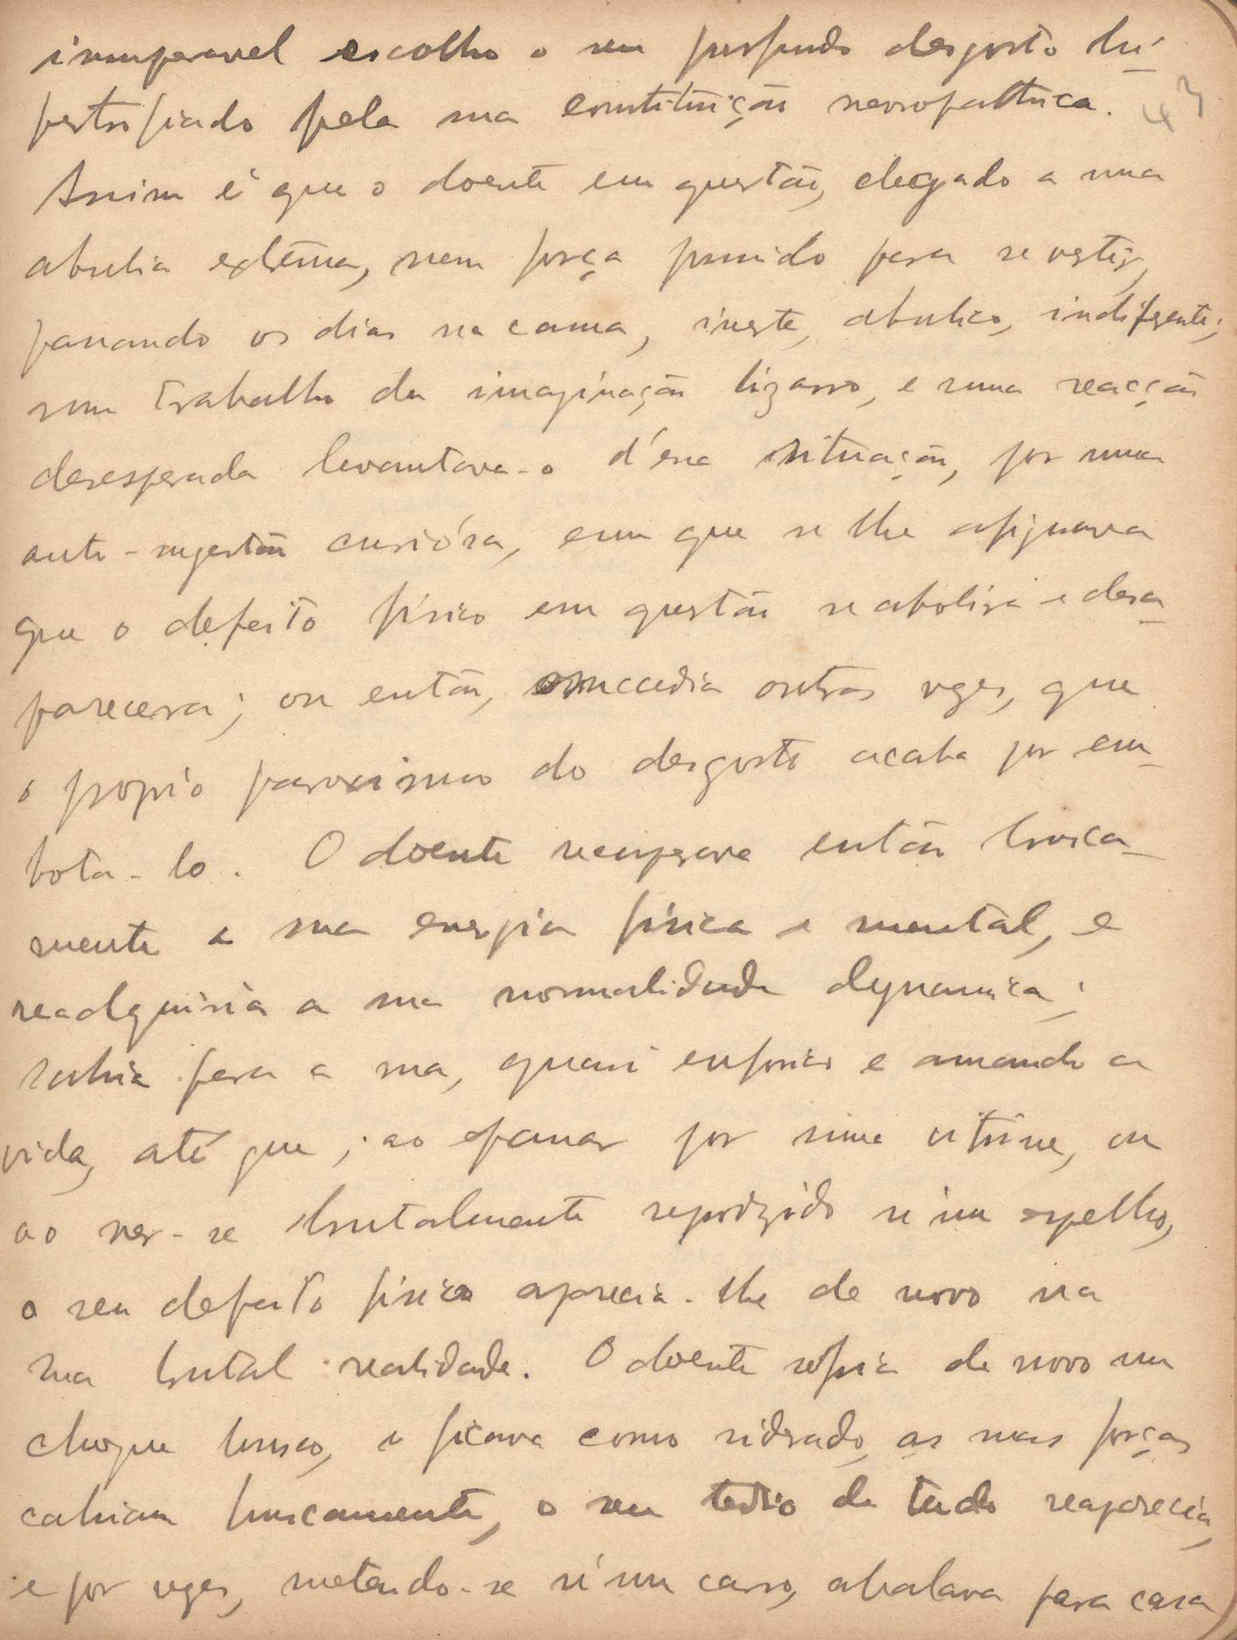 insuperavel escolho o seu profundo desgosto hi-
pertrofiado pela sua constituição nevropathica.
43
Assim é que o doente em questão, chegado a uma
abulia extrema, nem força possuido para se vestir,
passando os dias na cama, inerte, abulico, indiferente;
num trabalho da imaginação bizarro, e numa reacção
desesperada levantava-o d'essa situação, por uma
auto-sugestão curiósa, em que se lhe afigurava
que o defeito fisico em questão se abolira e desa-
parecera; ou então, succedia outras vezes, que
o proprio paroxismo do desgosto acaba por em-
bota-lo. O doente recuperava então brusca-
mente a sua energia fisica e mental, e
readquiria a sua normalidade dynamica;
sahia para a rua, quasi euforico e amando a
vida, até que, ao passar por uma vitrine, ou
ao ver-se brutalmente reproduzido n'um espelho,
o seu defeito fisico aparecia-lhe de novo na
sua brutal realidade. O doente sofria de novo um
choque brusco, e ficava como sidrado, as suas forças
cahiam bruscamente, o seu tedio de tudo reaparecia,
e por vezes, metendo-se n'um carro, abalava para casa